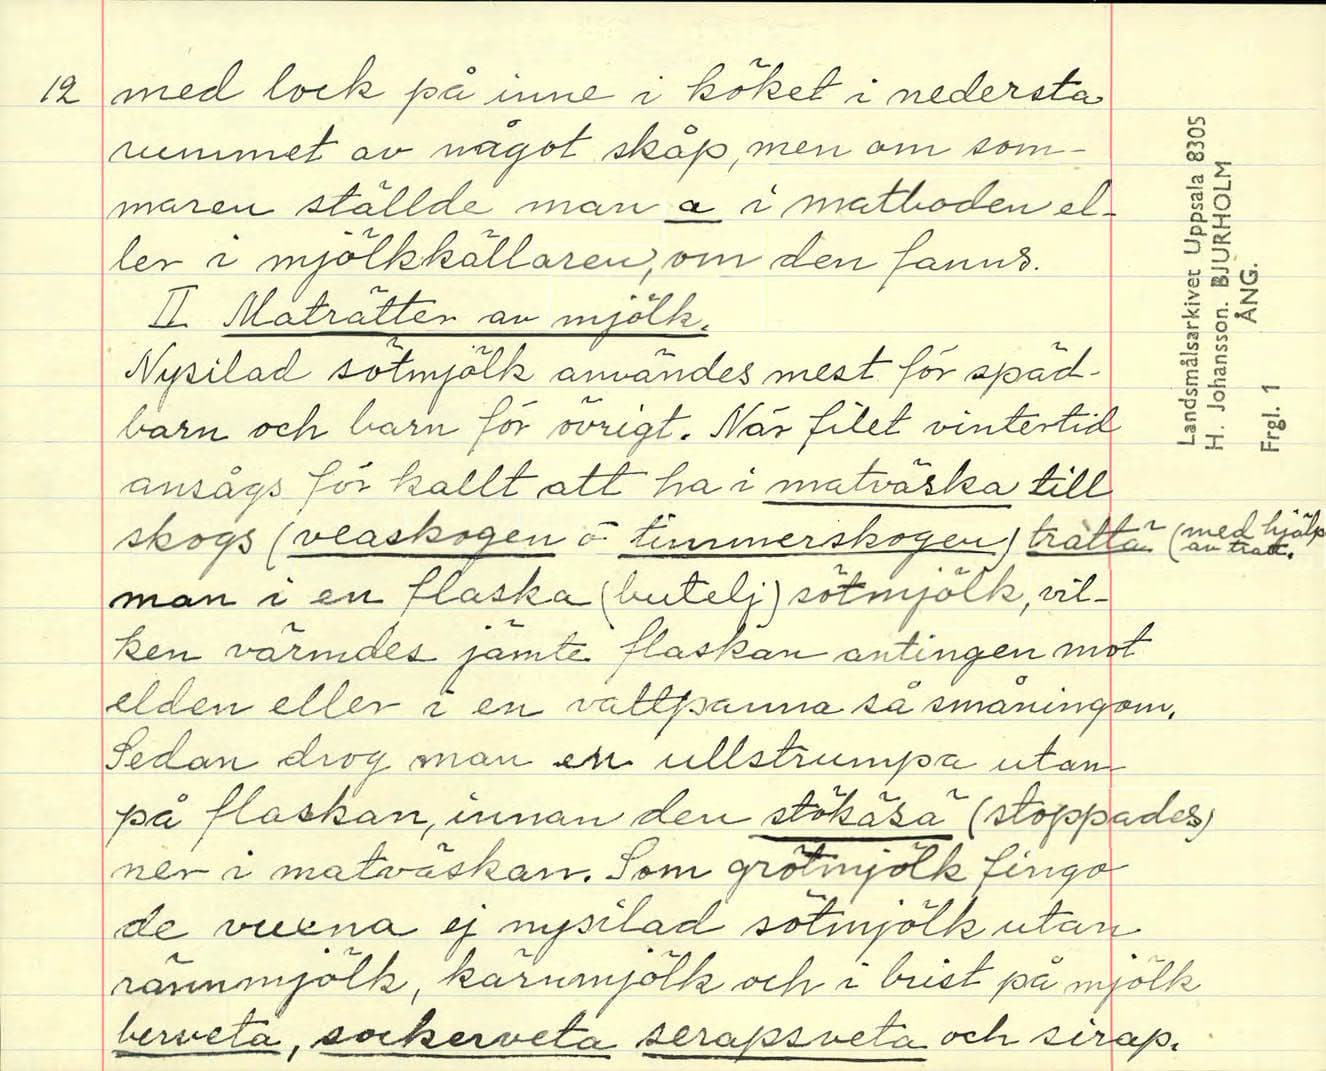 12 med lock på inne i köket i nedersta
rummet av något skåp, men om som-
maren ställde man a i matboden el-
ler i mjölkkällaren, om den fanns.
II Maträtter av mjölk.
Nysilad sötmjölk användes mest för späd-
barn och barn för övrigt. När filet vintertid
ansågs för kallt att ha i matväska till
skogs (veaskogen ö timmerskogen) trattä (med hjälp
av tratt.
man i en flaska (butelj) sötmjölk, vil-
ken värmdes jämte flaskan antingen mot
elden eller i en vattpanna så småningom.
Sedan drog man en ullstrumpa utan-
på flaskan, innan den stökäsä (stoppades)
ner i matväskan. Som grötmjölk fingo
de vuxna ej nysilad sötmjölk utan
rännmjölk, kärnmjölk och i brist på mjölk
berveta, sockerveta serapsveta och sirap.
Landsmålsarkivet Uppsala 8305
H. Johansson. BJURHOLM
ÅNG.
Frgl. 1